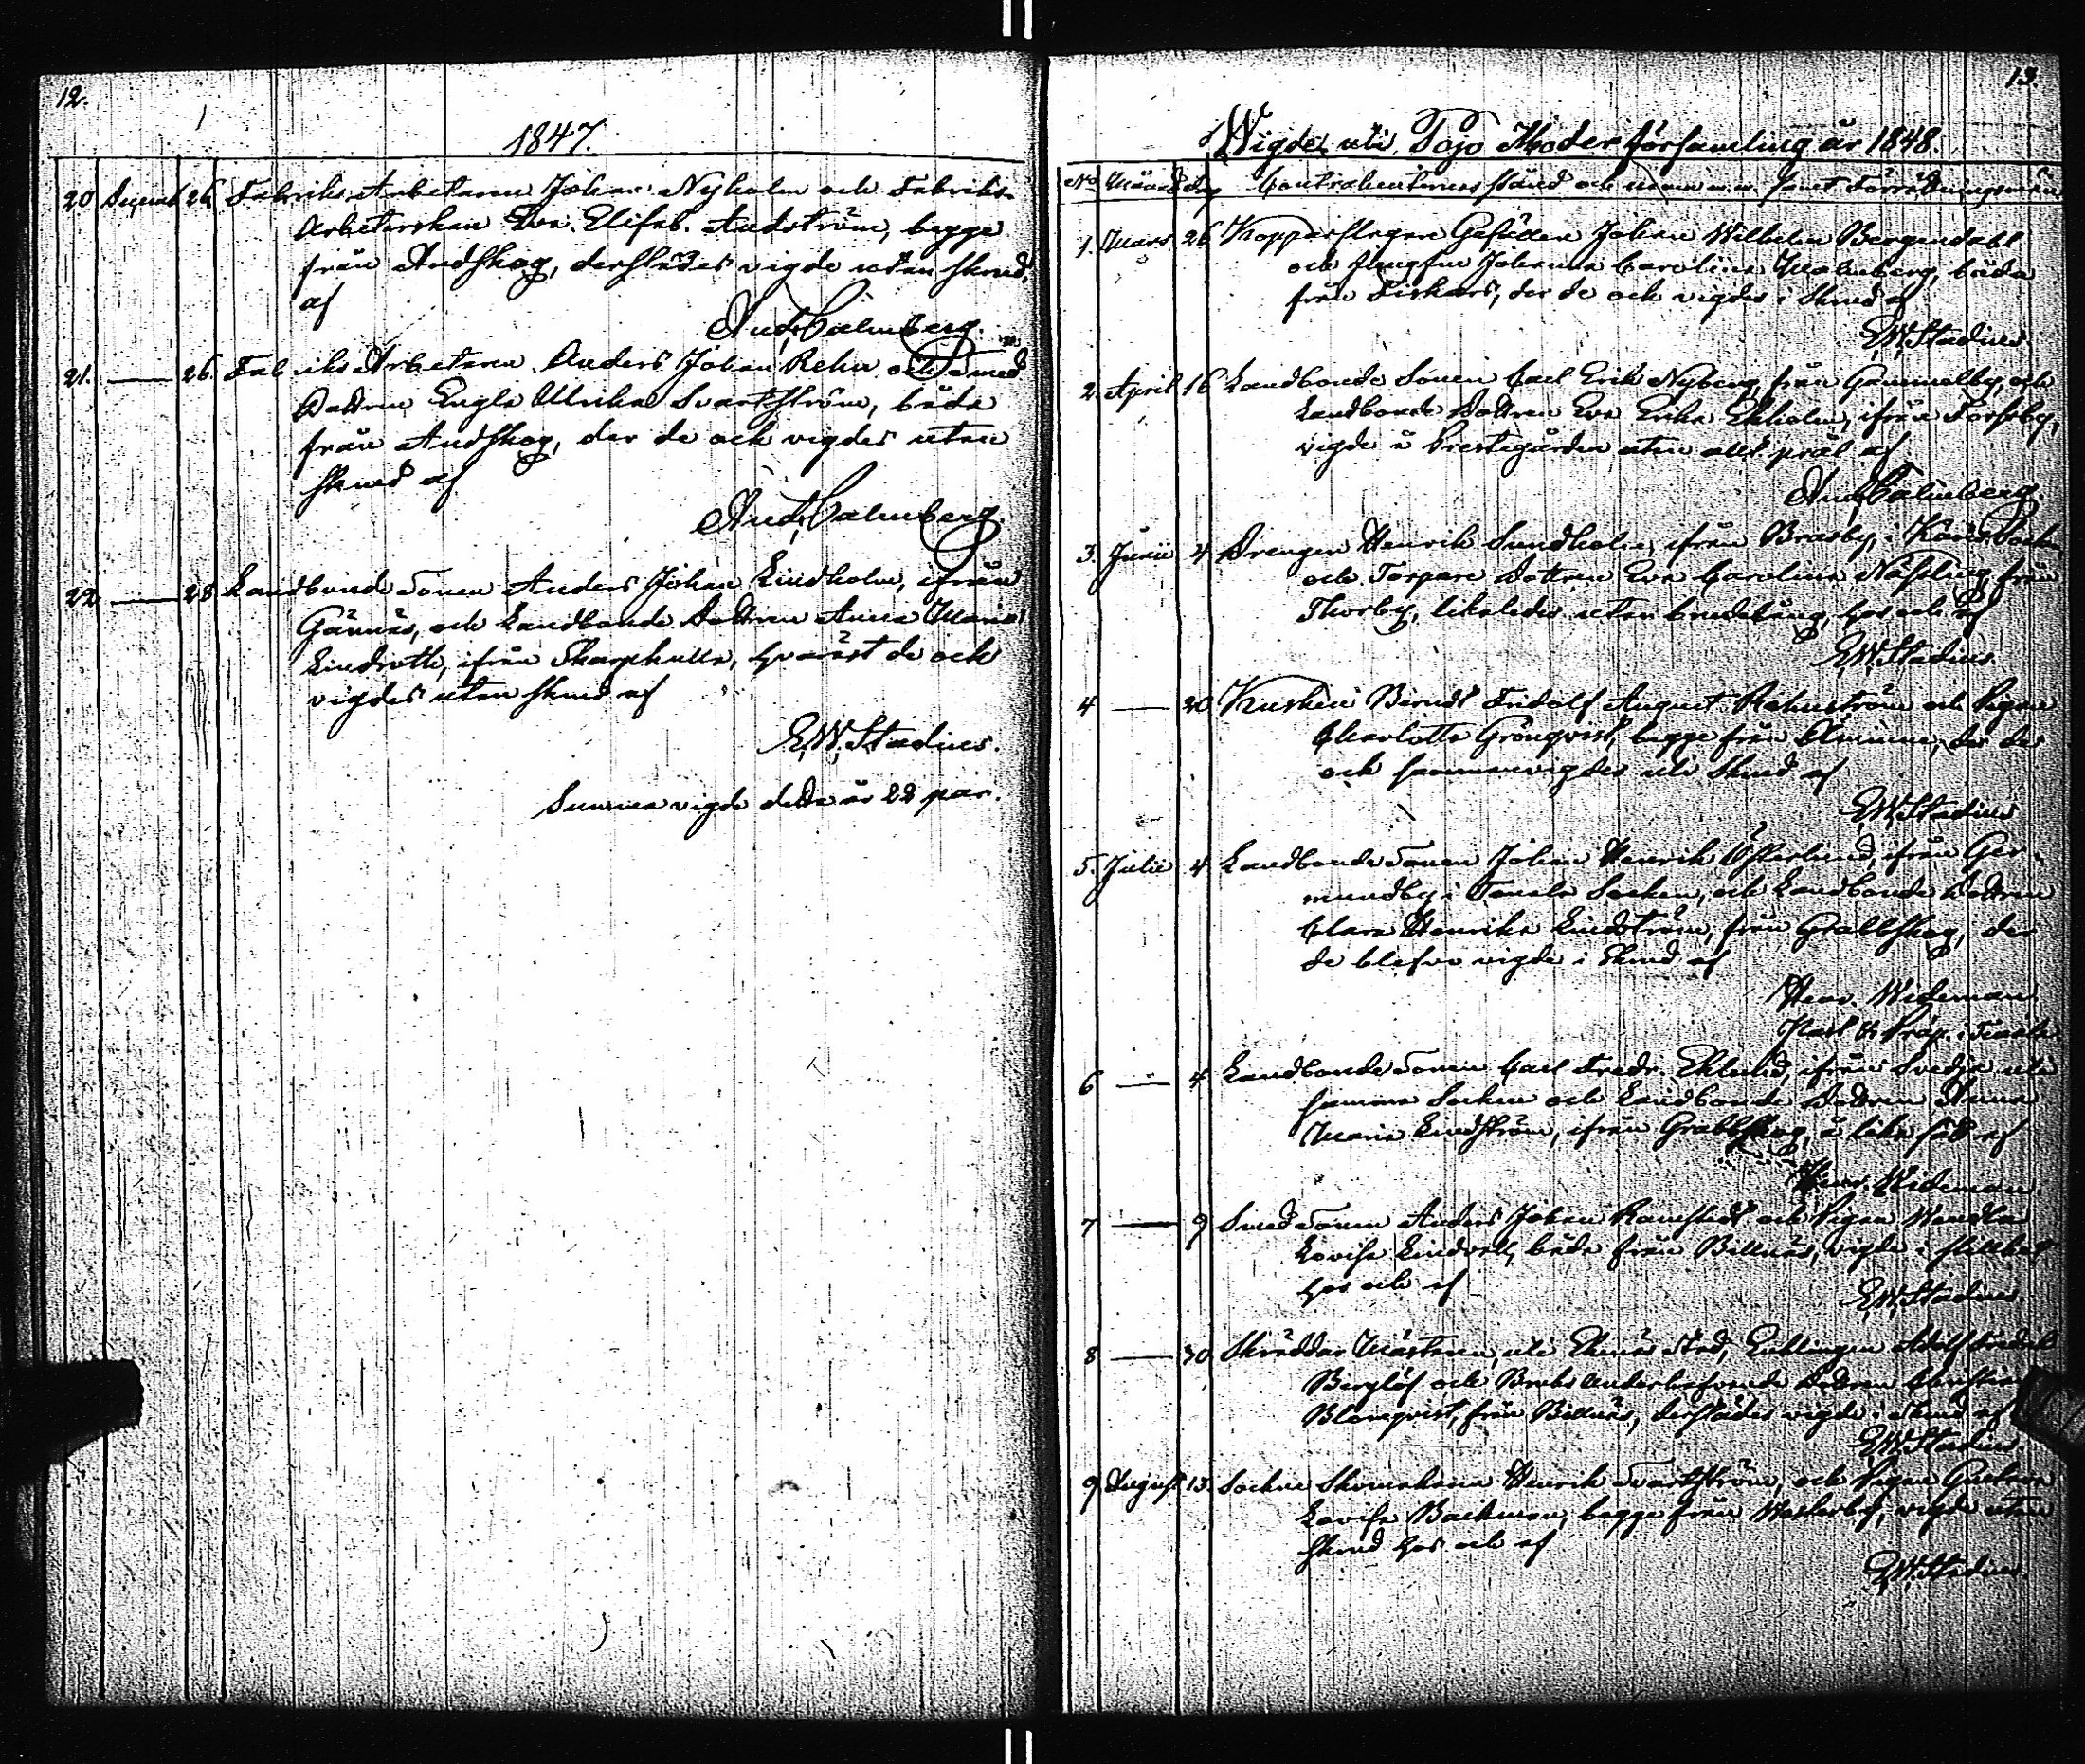 12.
1847.
20 Decemb 26 Fabriks Arbetaren Johan Nyholm och Fabriks-
Arbeterskan Eva Elisab. Andström, begge
från Andskog, derstädes vigde utan skrud,
af
And. Calmberg.
21. — 26. Fabriks Arbetaren Anders Johan Rehn och Smed
Dottren Engla Ulrika Svartström, båda
från Andskog, der de och vigdes utan
skrud af
And. Calmberg.
22 — 28 Landbonde Sonen Anders Johan Lindholm, ifrån
Gännäs, och Landbonde Dottren Anna Maria
Lindroth, ifrån Skarpkulla, hvarest de och
vigdes utan skrud af
E.W. Stadius.
Summa vigde detta år 22 par.
13.
Wigde uti Pojo Moder församling år 1848.
No Månad Dag Contrahenternes stånd och namn m.m. samt Förrättningsmän
1. Mars 26 Kopparslagare Gesällen Johan Wilhelm Bergendahl
och Jungfru Johanna Carolina Malmberg, båda
från Fiskars, der de och vigdes i skrud af
E.W. Stadius
2. April 16 Landbonde Sonen Carl Erik Nyberg, från Gammelby, och
Landbonde Dottren Eva Erika Ekholm, ifrån Forsby,
vigde å Prestegården utan allt prål af
And. Calmberg.
3. Junii 4 Drengen Henrik Sundholm, ifrån Brasby, i Karis Socken
och Torpare Dottren Eva Carolina från
Thorby, likaledes utan hos och af
E.W. Stadius.
4 — 20 Kusken Berndt Fridolf August Rehnström och Pigan
Charlotta Grönqvist, begge från Åminne, der de
och sammanvigdes uti skrud af
E.W. Stadius
5. Julii 4 Landbonde Sonen Johan Henrik Österlund, ifrån Ger-
mundby i Tenala Socken, och Landbonde Dottren
Clara Henrika Lindström, från Grabbskog, der
de blefvo vigde i skrud af
Henr. Wideman
i Tenala
6 — 4 Landbonde Sonen Carl Fredr. Eklund, ifrån Svedja uti
samma Socken och Landbonde Dottren Anna
Maria Lindström, ifrån Grabbskog, å lika sätt af
Henr. Wideman.
7 — 9 Smed Sonen Anders Johan Ramstedt och Pigan Wendla
Lovisa Lindvall, båda från Billnäs, vigde i stillhet
hos och af
E.W. Stadius
8 — 30 Skräddar Mästaren, uti Ekenäs Stad, Enklingen Adolf Fredrik
Berglöf och Bruks Dottren Christina
Blomqvist, från Billnäs, derstädes vigde i skrud af
E.W. Stadius.
9 August 13. Socken Skomakaren Henrik Svartström, och Pigan Gustava
Lovisa Backman, begge från Westerby, vigde utan
skrud hos och af
E.W. Stadius